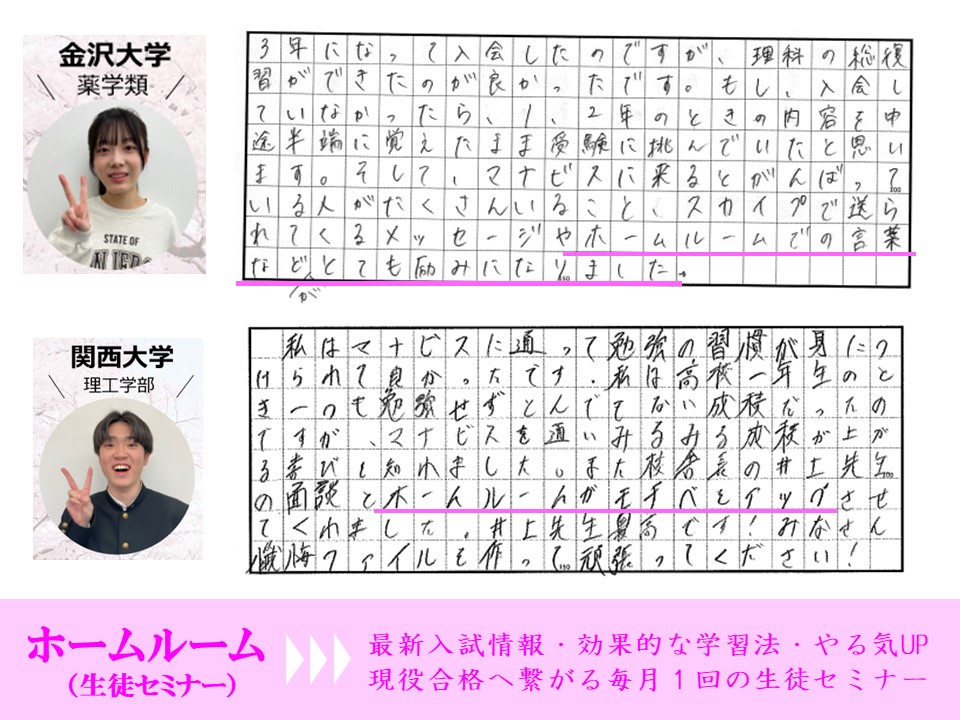 金沢大学
薬学類
STATE OF
3年になって入会したのですが、理科の総復
習ができたのが良かったです。もし、入会し
ていなかったら、1、2年のときの内容を中
途半端に覚えたまま受験に挑んでいたと思い
ます。そして、マナビスに来るとがんばって
いる人がたくさんいること、スカイプで送ら
れてくるメッセージやホームルームでの言葉
などとても励みになりました。
が
関西大学
理工学部
私はマナビスに通って勉強の習慣が身につ
けられて良かったです。私は高校一年生のと
き一つも勉強せずとんでてない成積だったの
ですが、マナビスを通いみるみる成積が上が
る喜びを知れました。また校舎長の井上先生
の面談とホームルームがモチベをアップさせ
てくれました。井上先生最高です!みなさん
懺悔ファイルを作って頑張ってください!
ホームルーム
(生徒セミナー)
最新入試情報・効果的な学習法・やる気UP
現役合格へ繋がる毎月1回の生徒セミナー